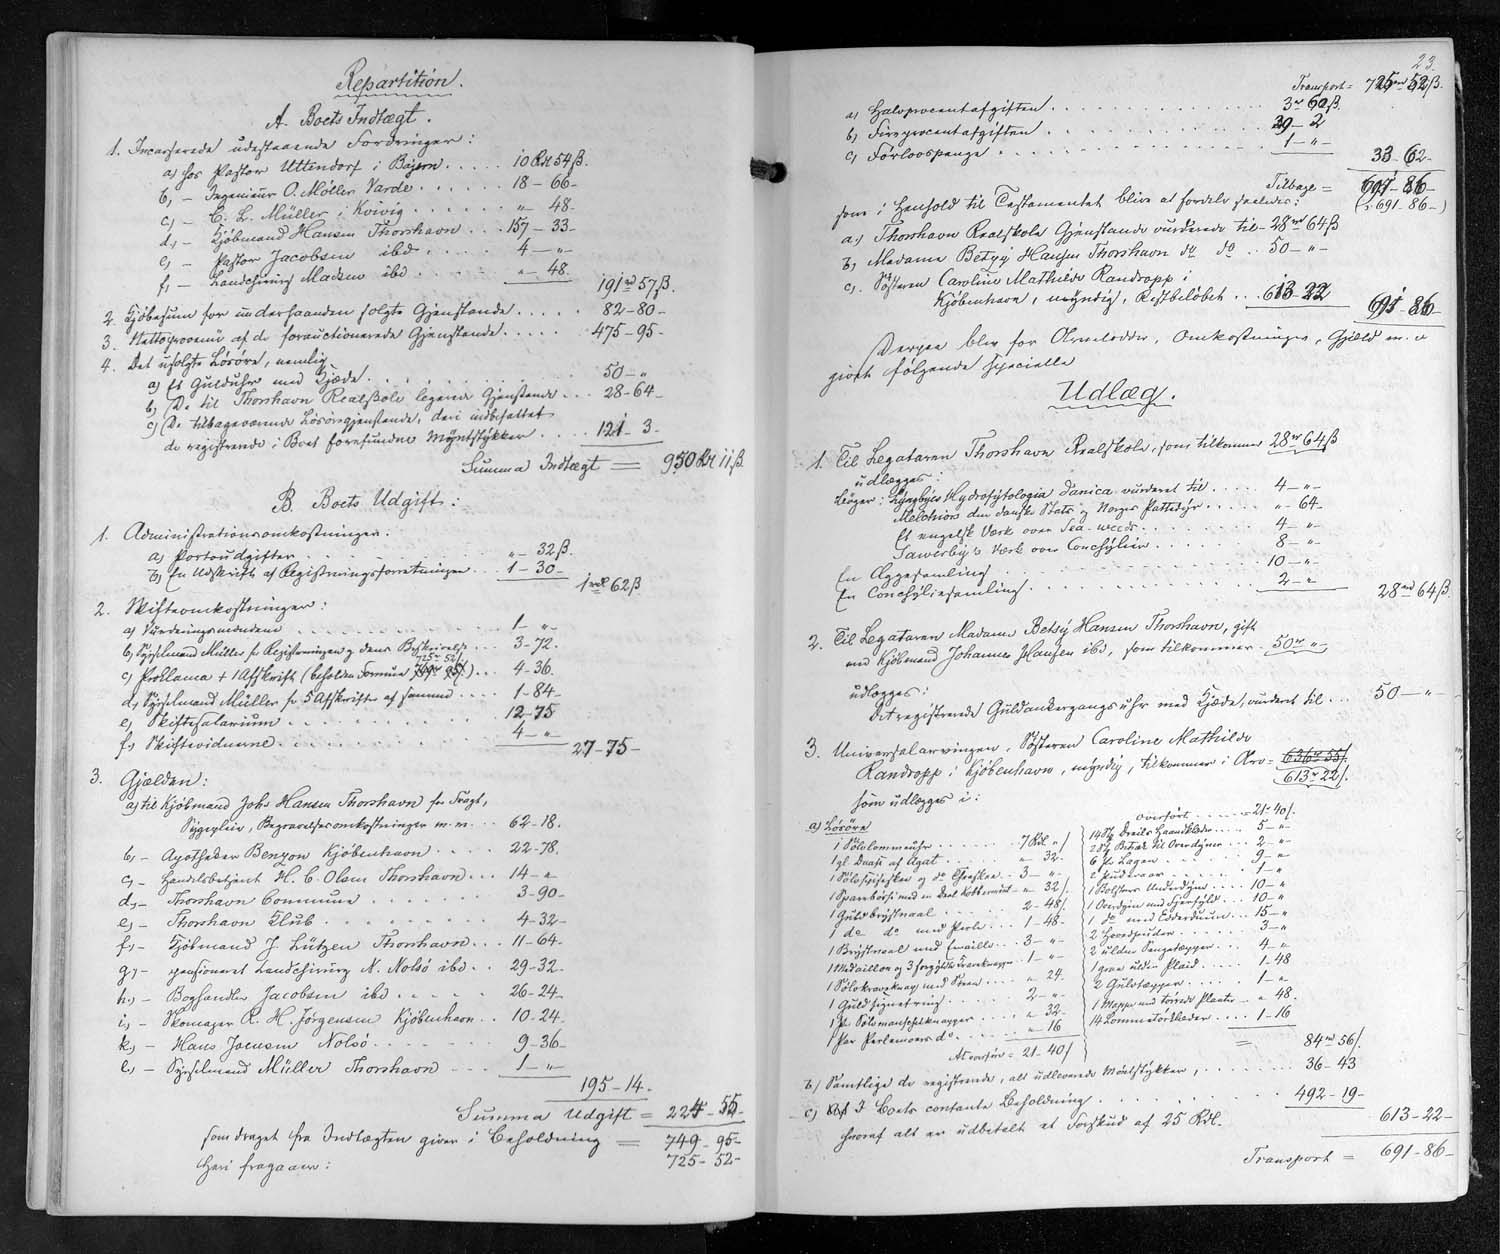 Repartition.
A. Boets Indtægt.
1. Incasserede udestaaende Fordringer:
a) hos Pastor Uttendorf i Bajern . . . . 10 Rd 54 ß.
b) — Ingenieur O. Møller Varde . . . . . 18 – 66 –
c) — C. L. Müller i Kvivig . . . . . . " – 48.
d) — Kjöbmand Hansen Thorshavn . . . 157 – 33 –
e) — Pastor Jacobsen ibd . . . . . 4 – "
f) — Landchirurg Madsen ibd . . . . . " – 48. 191 rd 57 ß.
2. Kjöbesum for underhaanden solgte Gjenstande . . . . . 82 – 80 –
3. Nettoprovenü af de forauctionerede Gjenstande . . . . . 475 – 95 –
4. Det usolgte Lösöre, nemlig
a) Et Gulduhr med Kjæde . . . . . . . . . . 50 – "
b) De til Thorshavn Realskole legerede Gjenstande . . . 28 – 64 –
c) De tilbageværende Lösöregjenstande, deri indbefattet
de registrerede i Boet forefundne Myntstykker . . . . 121 – 3 –
Summa Indtægt = 950 Rd 11 ß
B. Boets Udgift:
1. Administrationsomkostninger.
a) Portoudgifter . . . . . . . . . . " – 32 ß.
b) En Udskrift af Registreringsforretningen . . . 1 – 30 – 1 rd 62 ß
2. Skifteomkostninger:
a) Vurderingsmændene . . . . . . . . . . 1 – "
b) Sysselmand Müller for Registreringen og dens Beskrivelse . . 3 – 72.
725 rd 52 ß
c) Proklama + 1 Afskrift (beholden Formue 749 rd 95 ß) . . . 4 – 36.
d) Sysselmand Müller for 5 Afskrifter af samme . . . . 1 – 84 –
e) Skiftesalarium . . . . . . . . . . . . 12 – 75
f) Skiftevidnerne . . . . . . . . . . 4 – " 27 – 75 –
3. Gjælden:
a) til Kjöbmand Johs Hansen Thorshavn for Fragt,
Sygepleie, Begravelsesomkostninger m. m. . . . 62 – 18.
b) — Apotheker Benzon Kjöbenhavn . . . . . 22 – 78.
c) — Handelsbetjent H. C. Olsen Thorshavn . . . 14 – "
d) — Thorshavn Commune . . . . . . . . 3 – 90 –
e) — Thorshavn Klub . . . . . . . . . 4 – 32 –
f) — Kjöbmand J. Lützen Thorshavn . . . 11 – 64.
g) — pensioneret Landchirurg N. Nolsö ibd . . 29 – 32.
h) — Boghandler Jacobsen ibd . . . . . 26 – 24 –
i) — Skomager R. H. Jörgensen Kjöbenhavn . . 10 – 24.
k) — Hans Joensen Nolsö . . . . . . . 9 – 36 –
l) — Sysselmand Müller Thorshavn . . . 1 – "
195 – 14.
Summa Udgift = 224 – 55 –
som draget fra Indtægten giver i Beholdning = 749 – 95 –
Heri fragaaer: 725 – 52 –
23.
Transport = 725 rd 52 ß.
a) Halvprocentafgiften . . . . . . . . . . . . 3 rd 60 ß.
b) Fireprocentafgiften . . . . . . . . . . . 29 – 2
c) Förlovspenge . . . . . . . . . . . . . . . 1 – " 33 – 62 –
Tilbage = 691 – 86 –
som i Henhold til Testamentet blive at fordele saaledes: (: 691 – 86 –)
a) Thorshavn Realskole Gjenstande vurderede til – 28 rd 64 ß
b) Madame Betsy Hansen Thorshavn do do . . 50 – " –
c) Søsteren Caroline Mathilde Randropp i
Kjöbenhavn, myndig, Restbelöbet . . . 613 – 22 691 – 86 –
Derpaa blev for Arvelodder, Omkostninger, Gjæld m. v
gjort fölgende specielle
Udlæg.
1. Til Legataren Thorshavn Realskole, som tilkommer 28 rd 64 ß
udlægges:
Bøger: Lyngbyes Hydrofytologia danica vurderet til . . . . 4 – "
Melchiors den danske Stats og Norges Pattedyr . . . . . " – 64 –
Et engelsk Værk over Sea-weeds . . . . . . 4 – "
Sawerby's Værk over Conchylier . . . . . . . 8 – "
En Æggesamling . . . . . . . . . . . . 10 – "
En Conchyliesamling . . . . . . . . . . . 2 – " 28 rd 64 ß.
2. Til Legataren Madame Betsy Hansen Thorshavn, gift
med Kjöbmand Johannes Hansen ibd, som tilkommer . 50 rd "
udlægges:
Det registrerede Guldankergangsuhr med Kjæde, vurderet til . . . 50 – " –
3. Universalarvingen, Søsteren Caroline Mathilde
Randropp i Kjöbenhavn, myndig, tilkommer i Arv = 636 rd 55 ß
613 rd 22 ß.
som udlægges i:
a) Lösöre
1 Sölvlommeuhr . . . . . . . 7 Rd "
1 gl. Daase af Agat . . . . . " 32.
1 Sölvspiseske og do Theskee . . 3 – "
1 Sparebössi med en Deel Kobbermynt " 32 ß.
1 Guldbrystnaal . . . . . . 2 – 48 ß.
1 do do med Perle . . 1 – 48.
1 Brystnaal med Emaille . . 3 – "
1 Medaillon og 3 forgyldte Kraveknapper 1 – "
1 Sölvkraveknap med Steen . . . . " 24.
1 Guld Signetring . . . . . 2 – "
1 Pr. Sölvmanschetknapper . . . " 32 –
1 Par Perlemoers do . . . . . . " – 16
At overföre = 21 – 40 ß
overfört . . . . . . 21 – 40 ß.
14 Stk Dreils Haandklæder . . . . 5 – "
2 Stk Betræk til Overdyner . . . 2 – "
6 St. Lagen . . . . . . . 9 – "
2 Pudevaar . . . . . . . 1 – "
1 Bolsters Underdyne . . . . 10 – "
1 Overdyne med Fjerfyld . . . 10 – "
1 do med Edderduun . . . 15 – "
2 Hovedpuder . . . . . . 3 – "
2 uldne Sengetæpper . . . . 4 – "
1 graa ulden Plaid . . . . . 1 – 48
2 Gulvtæpper . . . . . . 1 – "
1 Mappe med törrede Planter . " 48.
14 Lommetörklæder . . . . 1 – 16
= 84 rd 56 ß.
b) Samtlige de registrerede, alt udleverede Myntstykker, . . . . . . 36 – 43
c) I Boets contante Beholdning . . . . . . . . . . 492 – 19 –
hvoraf alt er udbetalt et Forskud af 25 Rdl. 613 – 22 –
Transport = 691 – 86 –